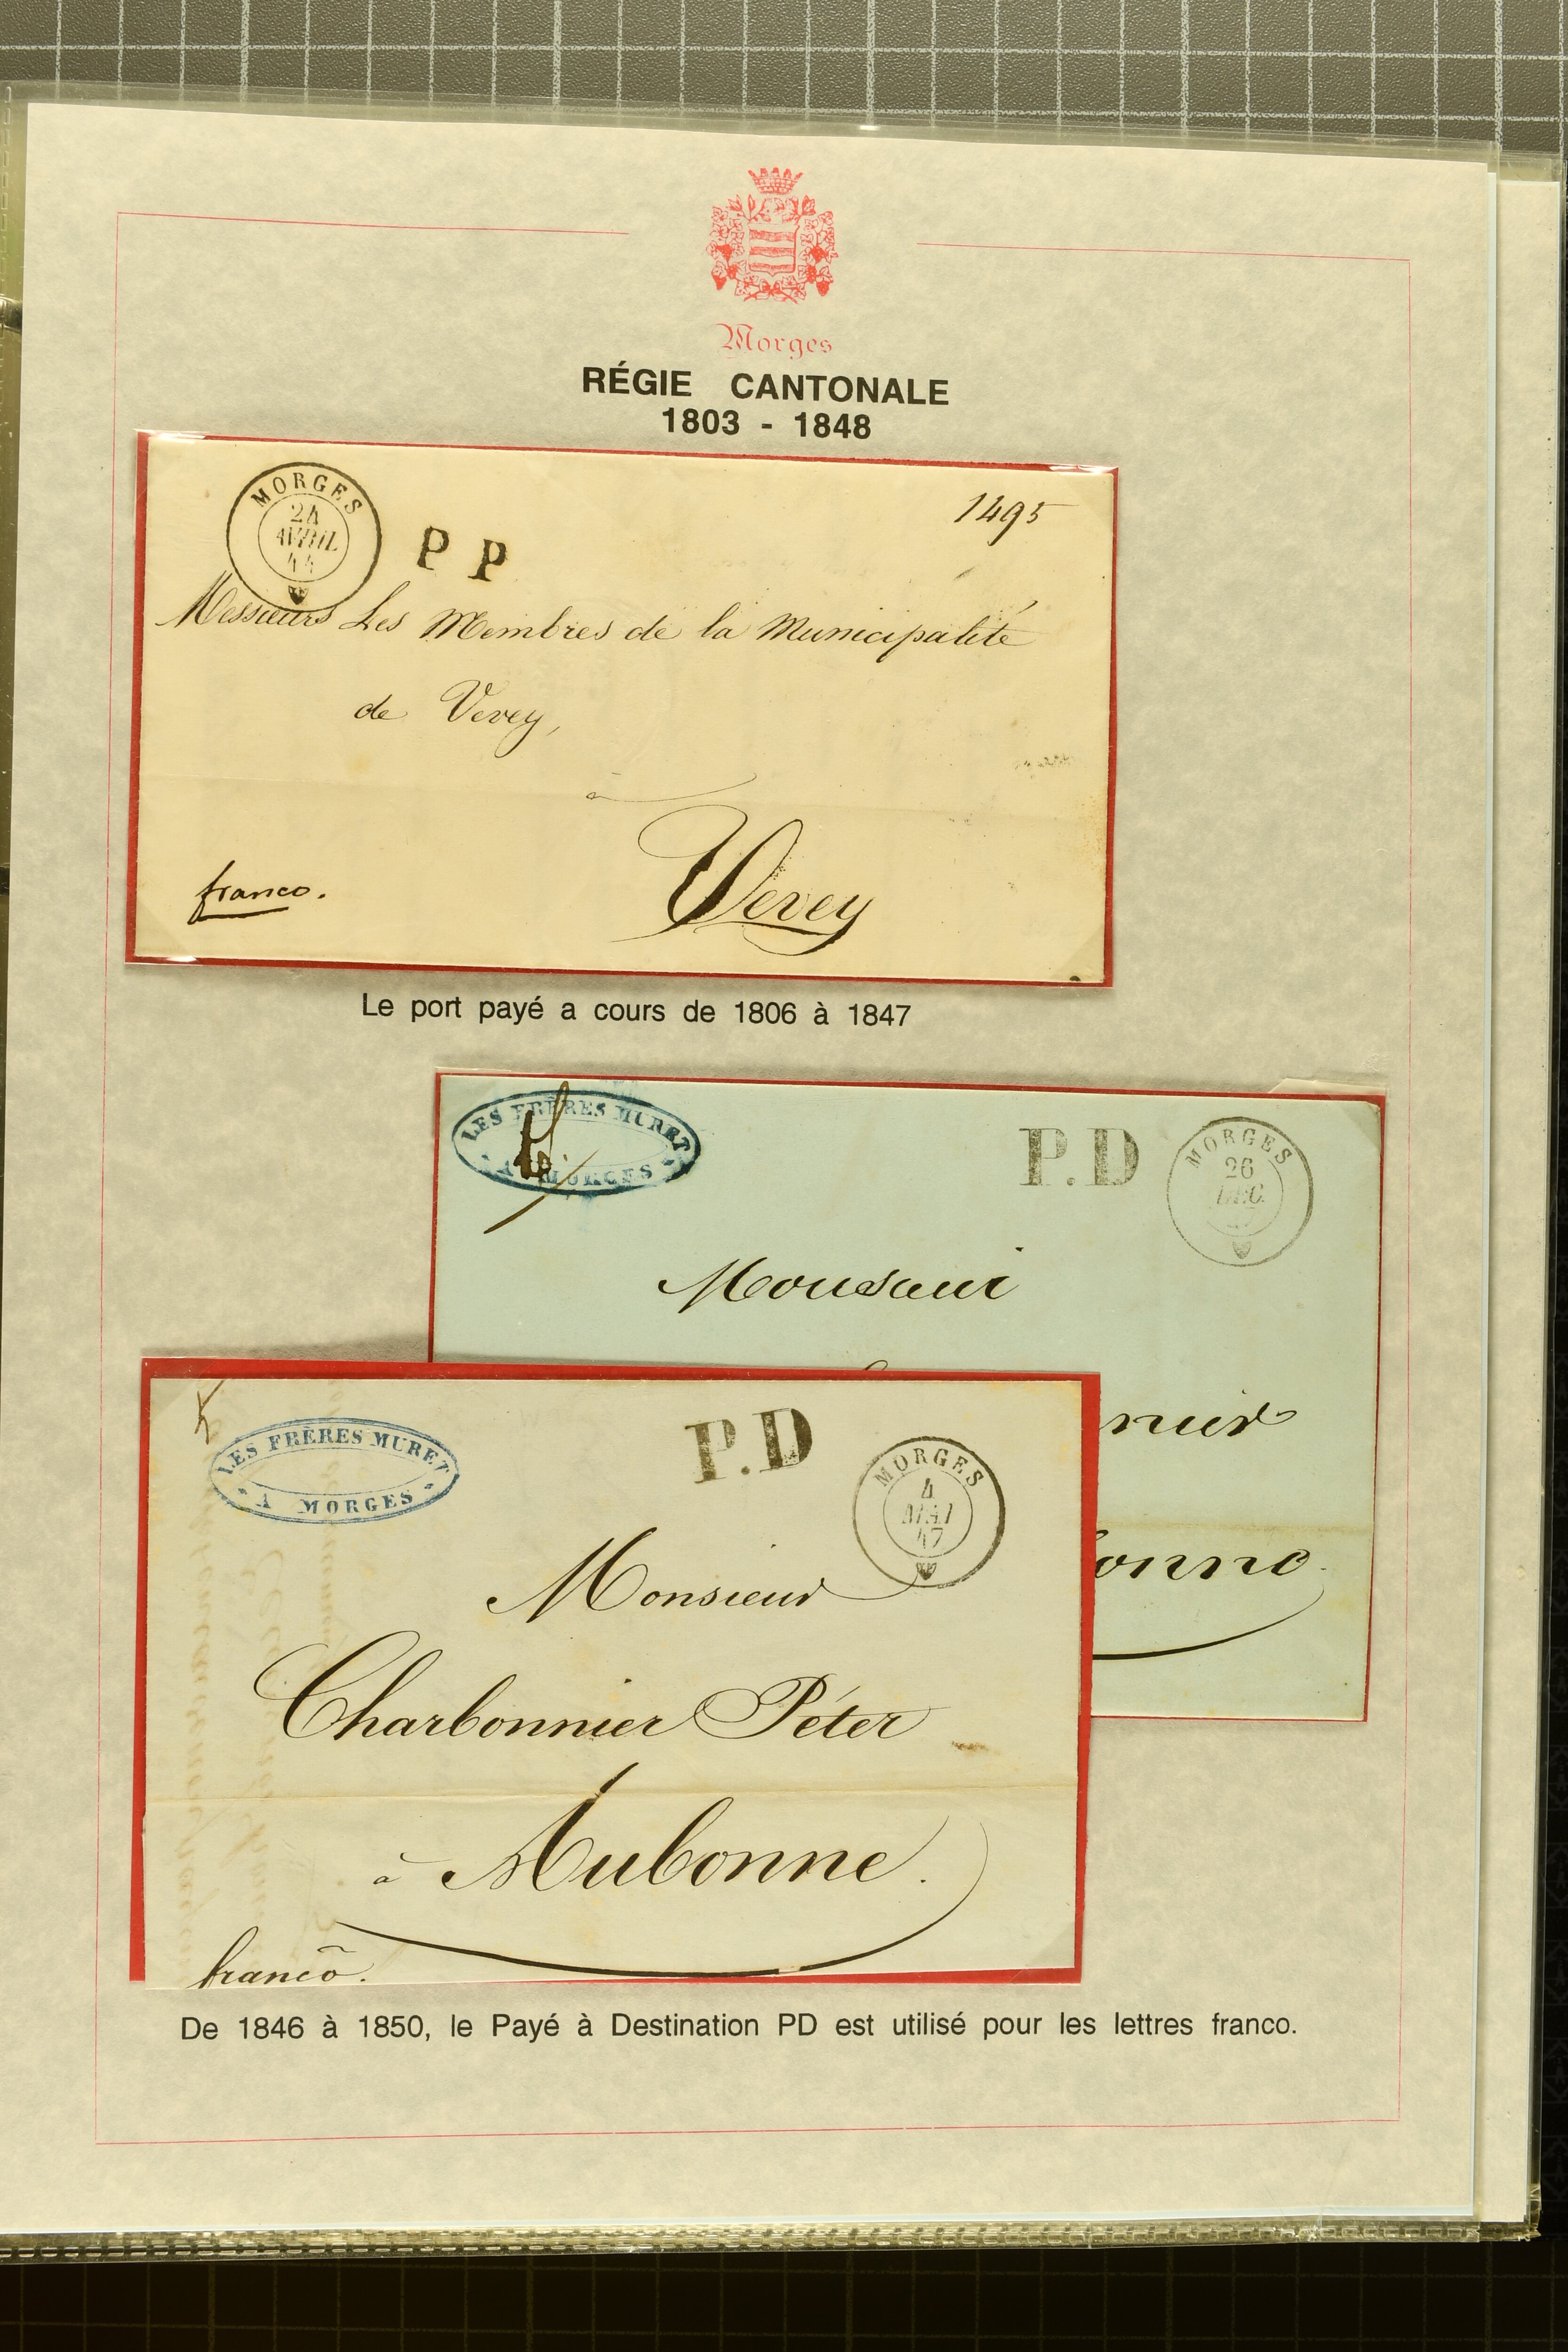 Morges
RÉGIE CANTONALE
1803 - 1848
MORGES
24
AVRIL
44
P P
1495
Messieurs Les Membres de la Municipalité
de Vevey,
à
Vevey
franco.
Le port payé a cours de 1806 à 1847
LES FRÈRES MURET
A MORGES
P.D
MORGES
26
DEC.
Monsieur
onne
LES FRÈRES MURET
A MORGES
P.D
MORGES
4
MAI
47
Monsieur
Charbonnier Péter
à Aubonne.
franco.
De 1846 à 1850, le Payé à Destination PD est utilisé pour les lettres franco.